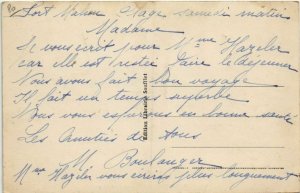 Fort Mahon Plage samedi matin
Madame
Je vous écrit pour Mme Hazeler
car elle est restée faire le déjeuner
Nous avons fait bon voyage
Il fait un temps superbe
Nous vous espérons en bonne santé
Les Amitiés de tous
M Boulanger
Mme Hazeler vous écrira plus longuement
Edition Librairie Soufflet